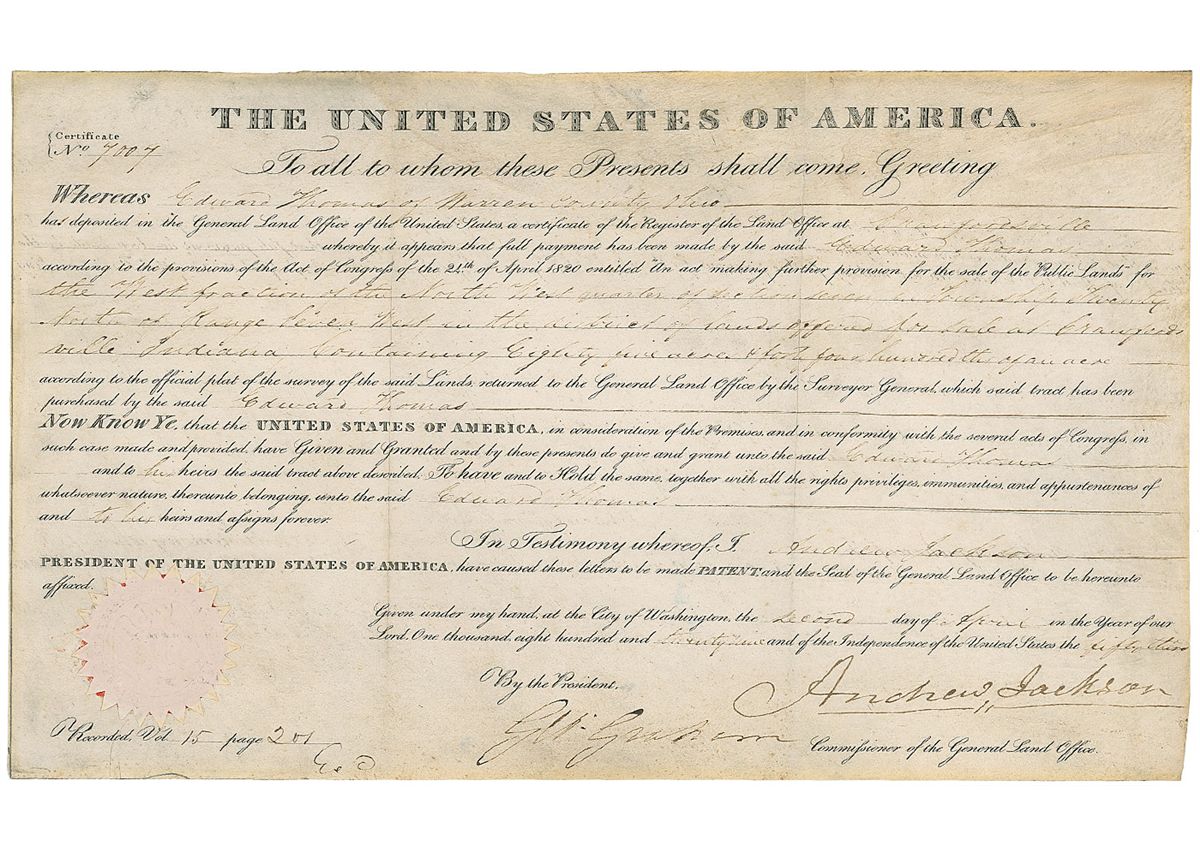 THE UNITED STATES OF AMERICA.
Certificate
No. 7007
To all to whom these Presents shall come, Greeting
Whereas Edward Thomas of Warren County Ohio
has deposited in the General Land Office of the United States, a certificate of the Register of the Land Office at Crawfordsville
whereby it appears that full payment has been made by the said Edward Thomas
according to the provisions of the Act of Congress of the 24th of April 1820 entitled "An act making further provision for the sale of the Public Lands" for
the West fraction of the North West quarter of Section seven in Township Twenty
North of Range Seven West in the district of lands offered for sale at Crawfords
ville Indiana Containing Eighty five acres & forty four hundredths of an acre
according to the official plat of the survey of the said Lands, returned to the General Land Office by the Surveyor General, which said tract has been
purchased by the said Edward Thomas
Now Know Ye, that the UNITED STATES OF AMERICA, in consideration of the Premises, and in conformity with the several acts of Congress, in
such case made and provided, have Given and Granted and by these presents do give and grant unto the said Edward Thomas
and to his heirs the said tract above described; To have and to Hold the same, together with all the rights privileges, immunities, and appurtenances of
whatsoever nature, thereunto belonging, unto the said Edward Thomas
and to his heirs and assigns forever.
In Testimony whereof, I, Andrew Jackson
PRESIDENT OF THE UNITED STATES OF AMERICA, have caused these letters to be made PATENT and the Seal of the General Land Office to be hereunto
affixed.
Given under my hand, at the City of Washington, the second day of April in the Year of our
Lord, One thousand, eight hundred and twenty nine and of the Independence of the United States the fifty third
By the President, Andrew Jackson
Geo. Graham Commissioner of the General Land Office.
Recorded, Vol 15 page 201